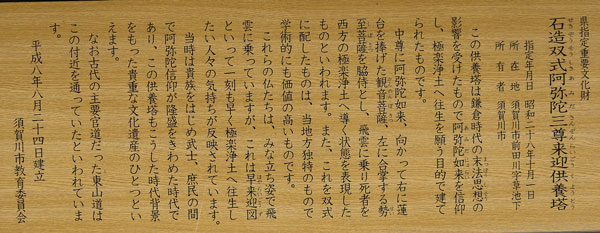 県指定重要文化財
石造双式阿弥陀三尊来迎供養塔
指定年月日 昭和二十八年十月一日
所在地 須賀川市前田川字草池下
所有者 須賀川市
この供養塔は鎌倉時代の末法思想の
影響を受けたもので阿弥陀如来を信仰
し、極楽浄土へ往生を願う目的で建て
られたものです。
中尊に阿弥陀如来、向かって右に蓮
台を捧げた観音菩薩、左に合掌する勢
至菩薩を脇侍とし、飛雲に乗り死者を
西方の極楽浄土へ導く状態を表現した
ものといわれます。また、これを双式
に配したものは、当地方独特のもので
学術的にも価値の高いものです。
これらの仏たちは、みな立ち姿で飛
雲に乗っていますが、これは早来迎図
といって一刻も早く極楽浄土へ往生し
たい人々の気持ちが反映されています。
当時は貴族をはじめ武士、庶民の間
で阿弥陀信仰が隆盛をきわめた時代で
あり、この供養塔もこうした時代背景
をもった貴重な文化遺産のひとつとい
えます。
なお古代の主要官道だった東山道は
この付近を通っていたといわれていま
す。
平成八年八月二十四日建立
須賀川市教育委員会